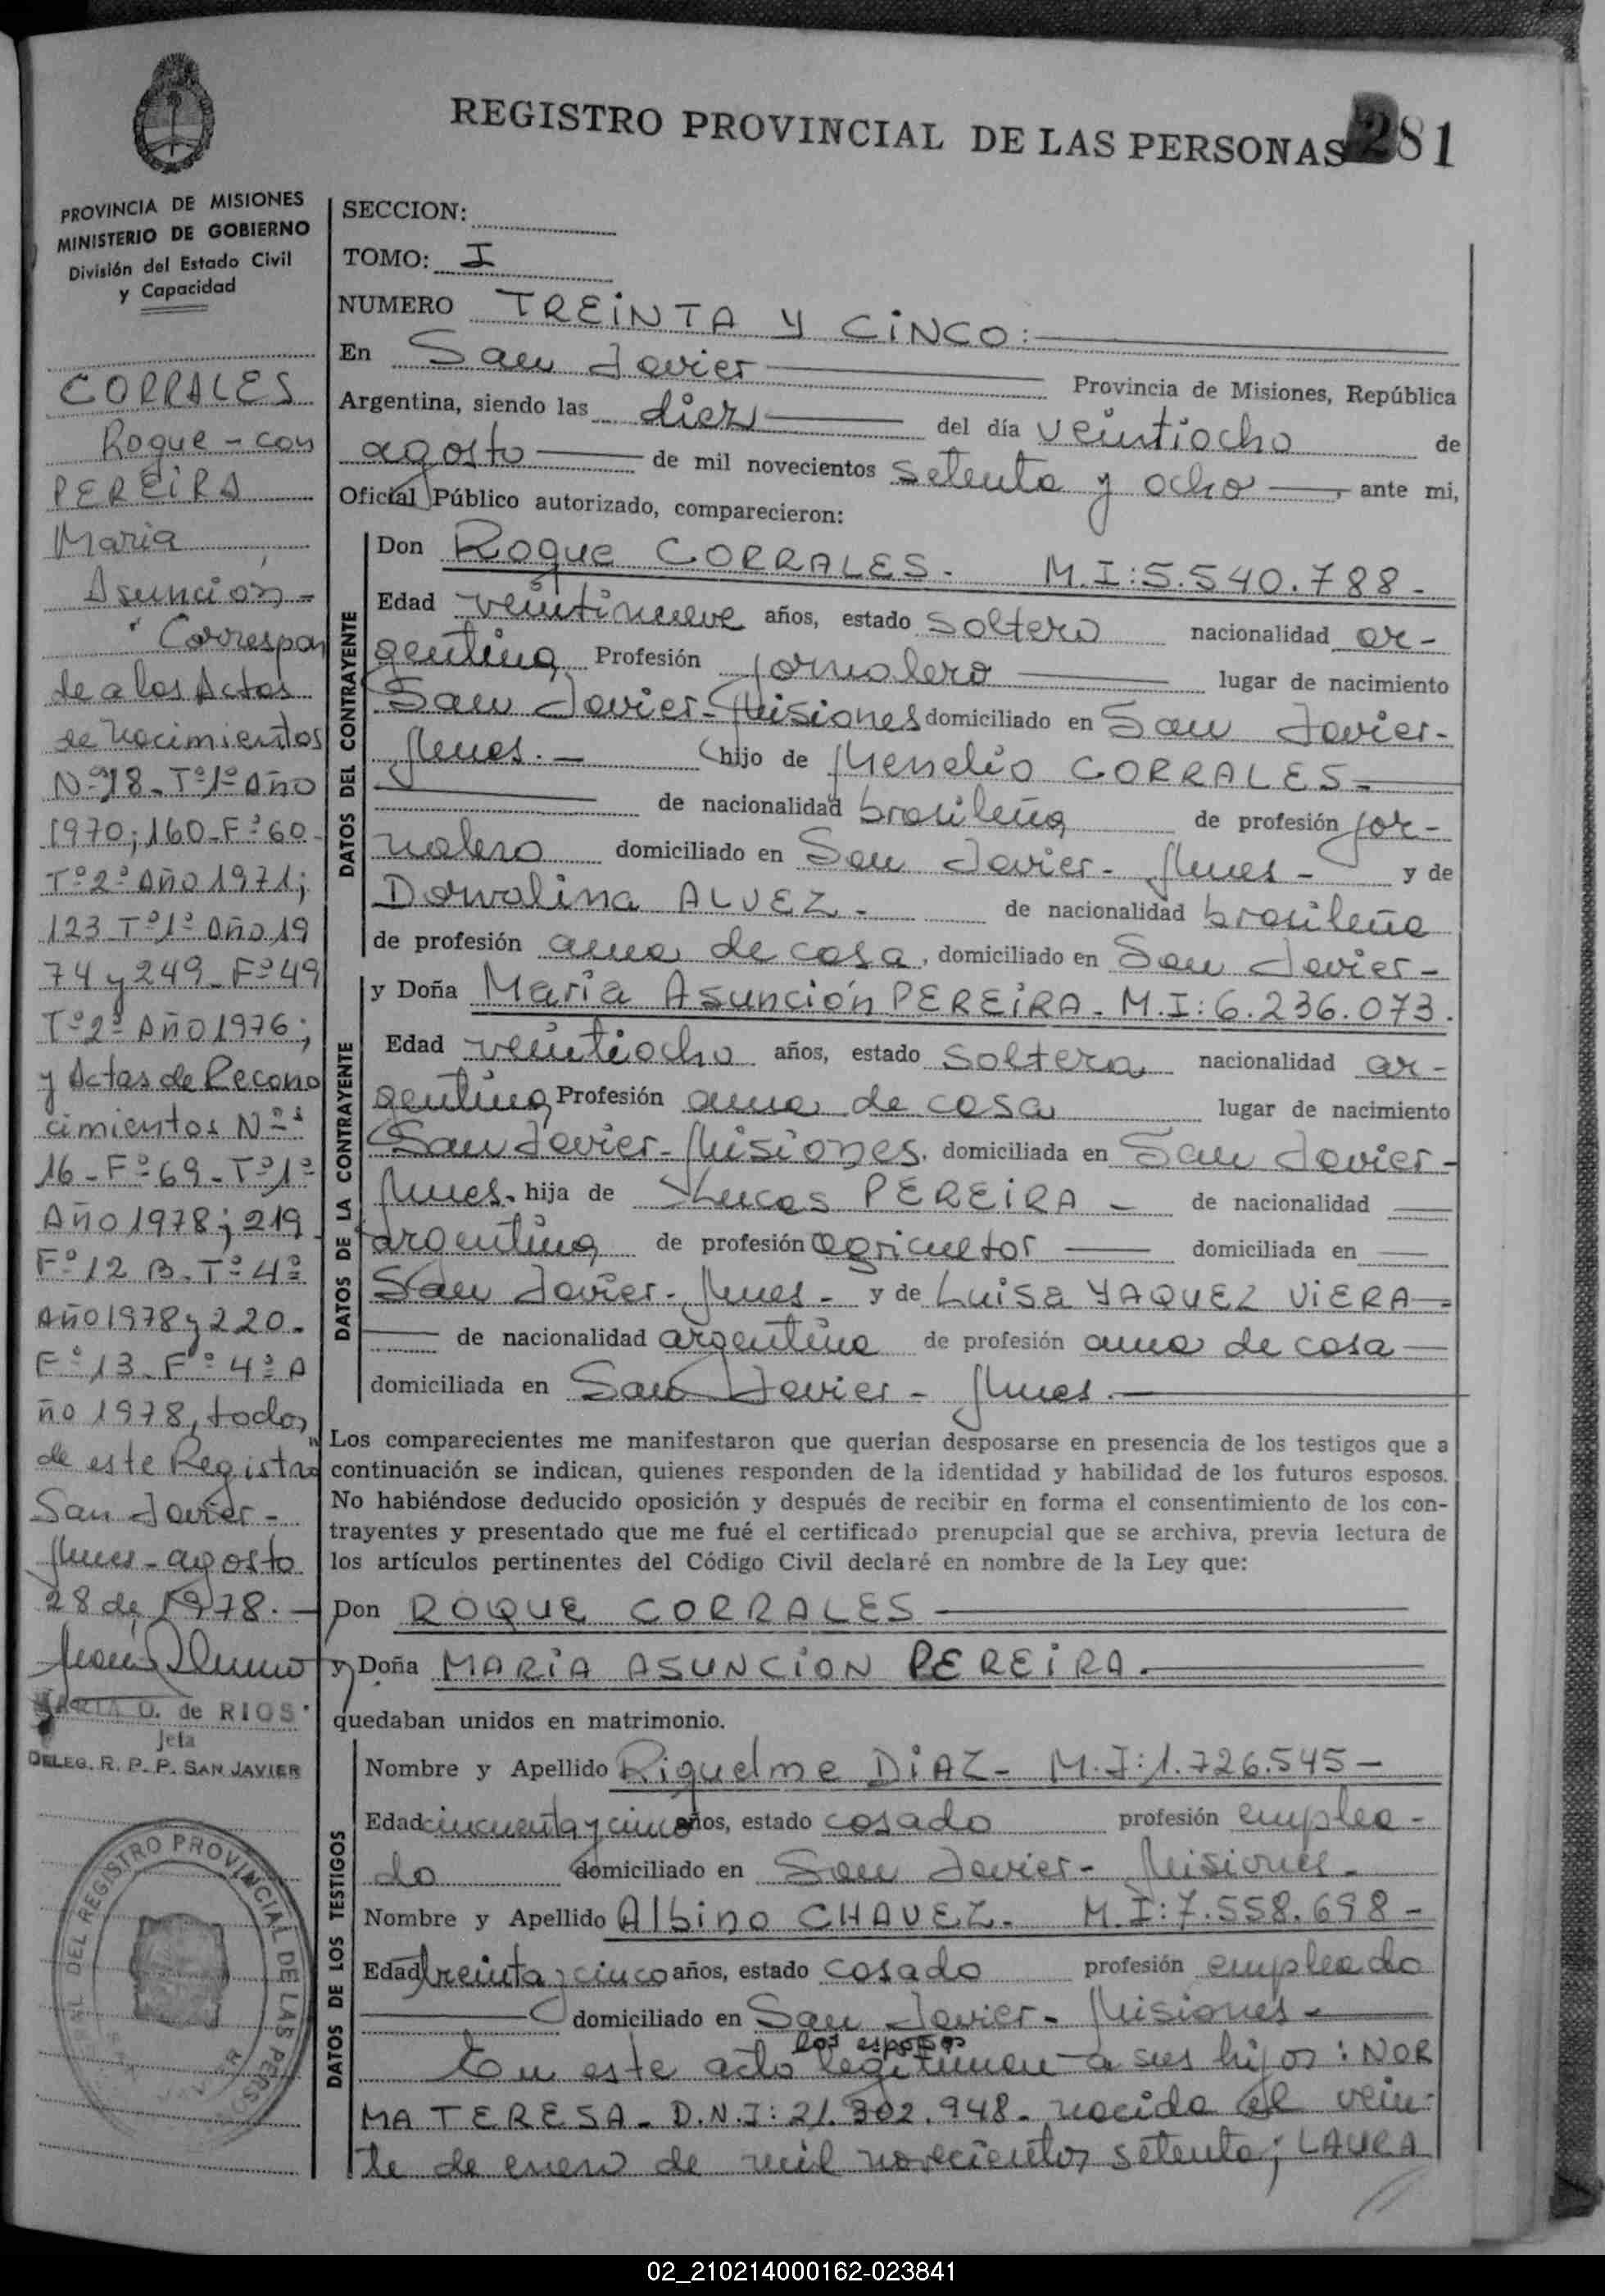 REGISTRO PROVINCIAL DE LAS PERSONAS
281
PROVINCIA DE MISIONES
MINISTERIO DE GOBIERNO
División del Estado Civil
y Capacidad
CORRALES
Roque - con
PEREIRA
Maria
Asunción -
Correspon
de a los Actas
de Nacimientos
Nº 18 - Tº 1º Año
1970; 160 - Fº 60 -
Tº 2º Año 1971;
123 Tº 1º Año 19
74 y 249 - Fº 49
Tº 2º Año 1976;
y Actas de Recono
cimientos Nºs
16 - Fº 69 - Tº 1º
Año 1978; 219
Fº 12 B. Tº 4º
Año 1978 y 220 -
Fº 13 - Fº 4º A
ño 1978, todos
de este Registro
San Javier -
Mnes - agosto
28 de 1978. -
MARIA O. de RIOS
Jefa
DELEG. R. P. P. SAN JAVIER
DEL REGISTRO PROVINCIAL DE LAS PERSONAS
SECCION:
TOMO: I
NUMERO TREINTA Y CINCO:
En San Javier Provincia de Misiones, República
Argentina, siendo las diez del día veintiocho de
agosto de mil novecientos setenta y ocho, ante mi,
Oficial Público autorizado, comparecieron:
DATOS DEL CONTRAYENTE
Don Roque CORRALES. M.I: 5.540.788 -
Edad veintinueve años, estado soltero nacionalidad ar-
gentina Profesión jornalero lugar de nacimiento
San Javier - Misiones domiciliado en San Javier -
Mnes. - hijo de Menelio CORRALES -
de nacionalidad brasileña de profesión jor-
nalero domiciliado en San Javier - Mnes - y de
Dorvalina ALVEZ - de nacionalidad brasileña
de profesión ama de casa, domiciliado en San Javier -
DATOS DE LA CONTRAYENTE
y Doña Maria Asunción PEREIRA - M.I: 6.236.073.
Edad veintiocho años, estado soltera nacionalidad ar-
gentina Profesión ama de casa lugar de nacimiento
San Javier - Misiones, domiciliada en San Javier -
Mnes. hija de Lucas PEREIRA - de nacionalidad
argentina de profesión agricultor domiciliada en
San Javier - Mnes - y de Luisa YAQUEZ VIERA -
de nacionalidad argentina de profesión ama de casa
domiciliada en San Javier - Mnes.
Los comparecientes me manifestaron que querían desposarse en presencia de los testigos que a
continuación se indican, quienes responden de la identidad y habilidad de los futuros esposos.
No habiéndose deducido oposición y después de recibir en forma el consentimiento de los con-
trayentes y presentado que me fué el certificado prenupcial que se archiva, previa lectura de
los artículos pertinentes del Código Civil declaré en nombre de la Ley que:
Don ROQUE CORRALES
y Doña MARIA ASUNCION PEREIRA.
quedaban unidos en matrimonio.
DATOS DE LOS TESTIGOS
Nombre y Apellido Riquelme DIAZ - M.I: 1.726.545 -
Edad cincuenta y cinco años, estado casado profesión emplea-
do domiciliado en San Javier - Misiones -
Nombre y Apellido Albino CHAVEZ. M.I: 7.558.698 -
Edad treinta y cinco años, estado casado profesión empleado
domiciliado en San Javier - Misiones -
los esposos
En este acto legitiman a sus hijos: NOR
MA TERESA - D.N.I: 21.302.948 - nacida el vein-
te de enero de mil novecientos setenta; LAURA
02_210214000162-023841